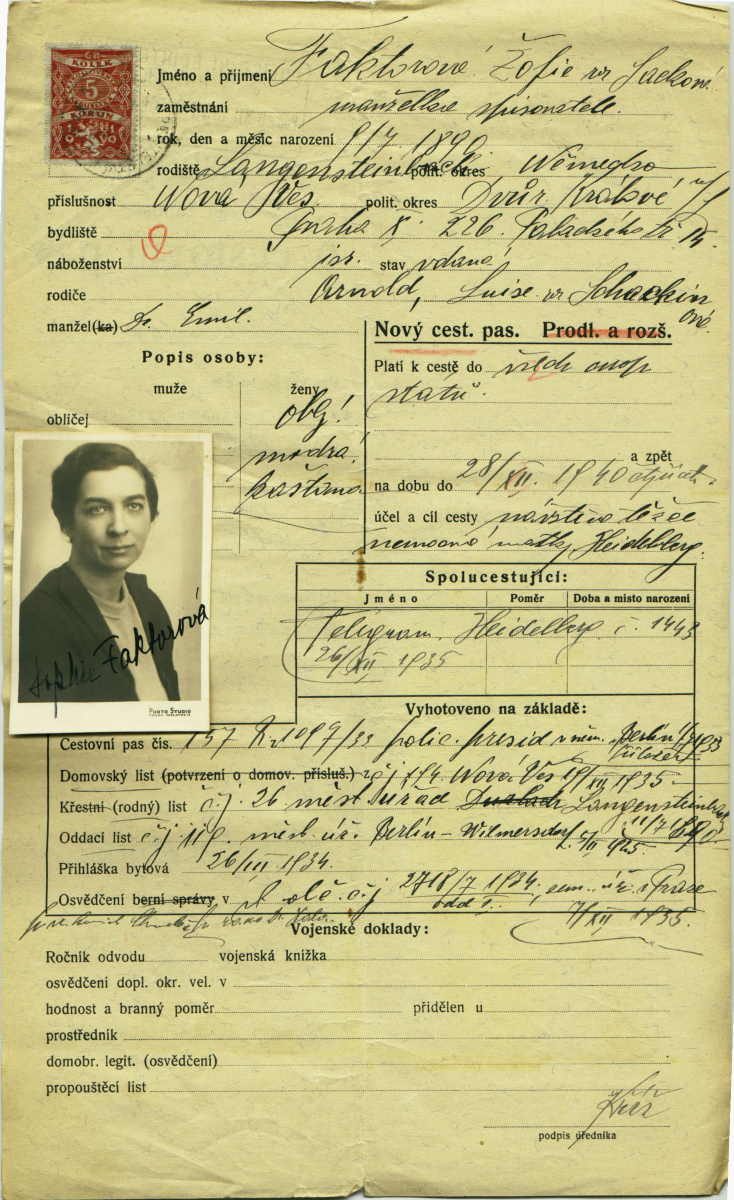 ČR
KOLEK
5
KORUN
Jméno a příjmení Faktorová Žofie roz Sackovi
zaměstnání manželka spisovatele.
rok, den a měsíc narození 9/7. 1890
rodiště Langensteinbach polit. okres Německo
příslušnost Nová Ves polit. okres Dvůr Králové n/L
bydliště Praha X. 226. Palackého tř. 15.
náboženství isr. stav vdaná
rodiče Arnold, Luise roz Schackin
ové.
manžel(ka) Dr. Emil.
Nový cest. pas. Prodl. a rozš.
Popis osoby:
muže ženy
Platí k cestě do všech evrop
států.
obličej obl!
modrá!
kaštanov
a zpět
na dobu do 28/XII. 1940
účel a cíl cesty návštěva těžce
nemocné matky, Heidelberg.
Spolucestující:
Jméno Poměr Doba a místo narození
Telegram. Heidelberg č. 1443
26/XII 1935
Sophie Faktorová
PHOTO STUDIO
Vyhotoveno na základě:
Cestovní pas čís. 157 R. 1099/33 polic. presid v něm. Berlín 1933
Domovský list (potvrzení o domov. přísluš.) čj 174. Nová Ves 19/XII 1935.
Křestní (rodný) list č.j. 26 měst. úřad Durlach Langensteinbach
11/7 1890.
Oddací list čj 110. měst. úř. Berlín - Wilmersdorf 1925.
Přihláška bytová 26/III 1934.
Osvědčení berní správy v čj 2718/7 1934, odd I. v Praze
7/XII 1935.
Vojenské doklady:
Ročník odvodu vojenská knížka
osvědčení dopl. okr. vel. v
hodnost a branný poměr přidělen u
prostředník
domobr. legit. (osvědčení)
propouštěcí list
podpis úředníka